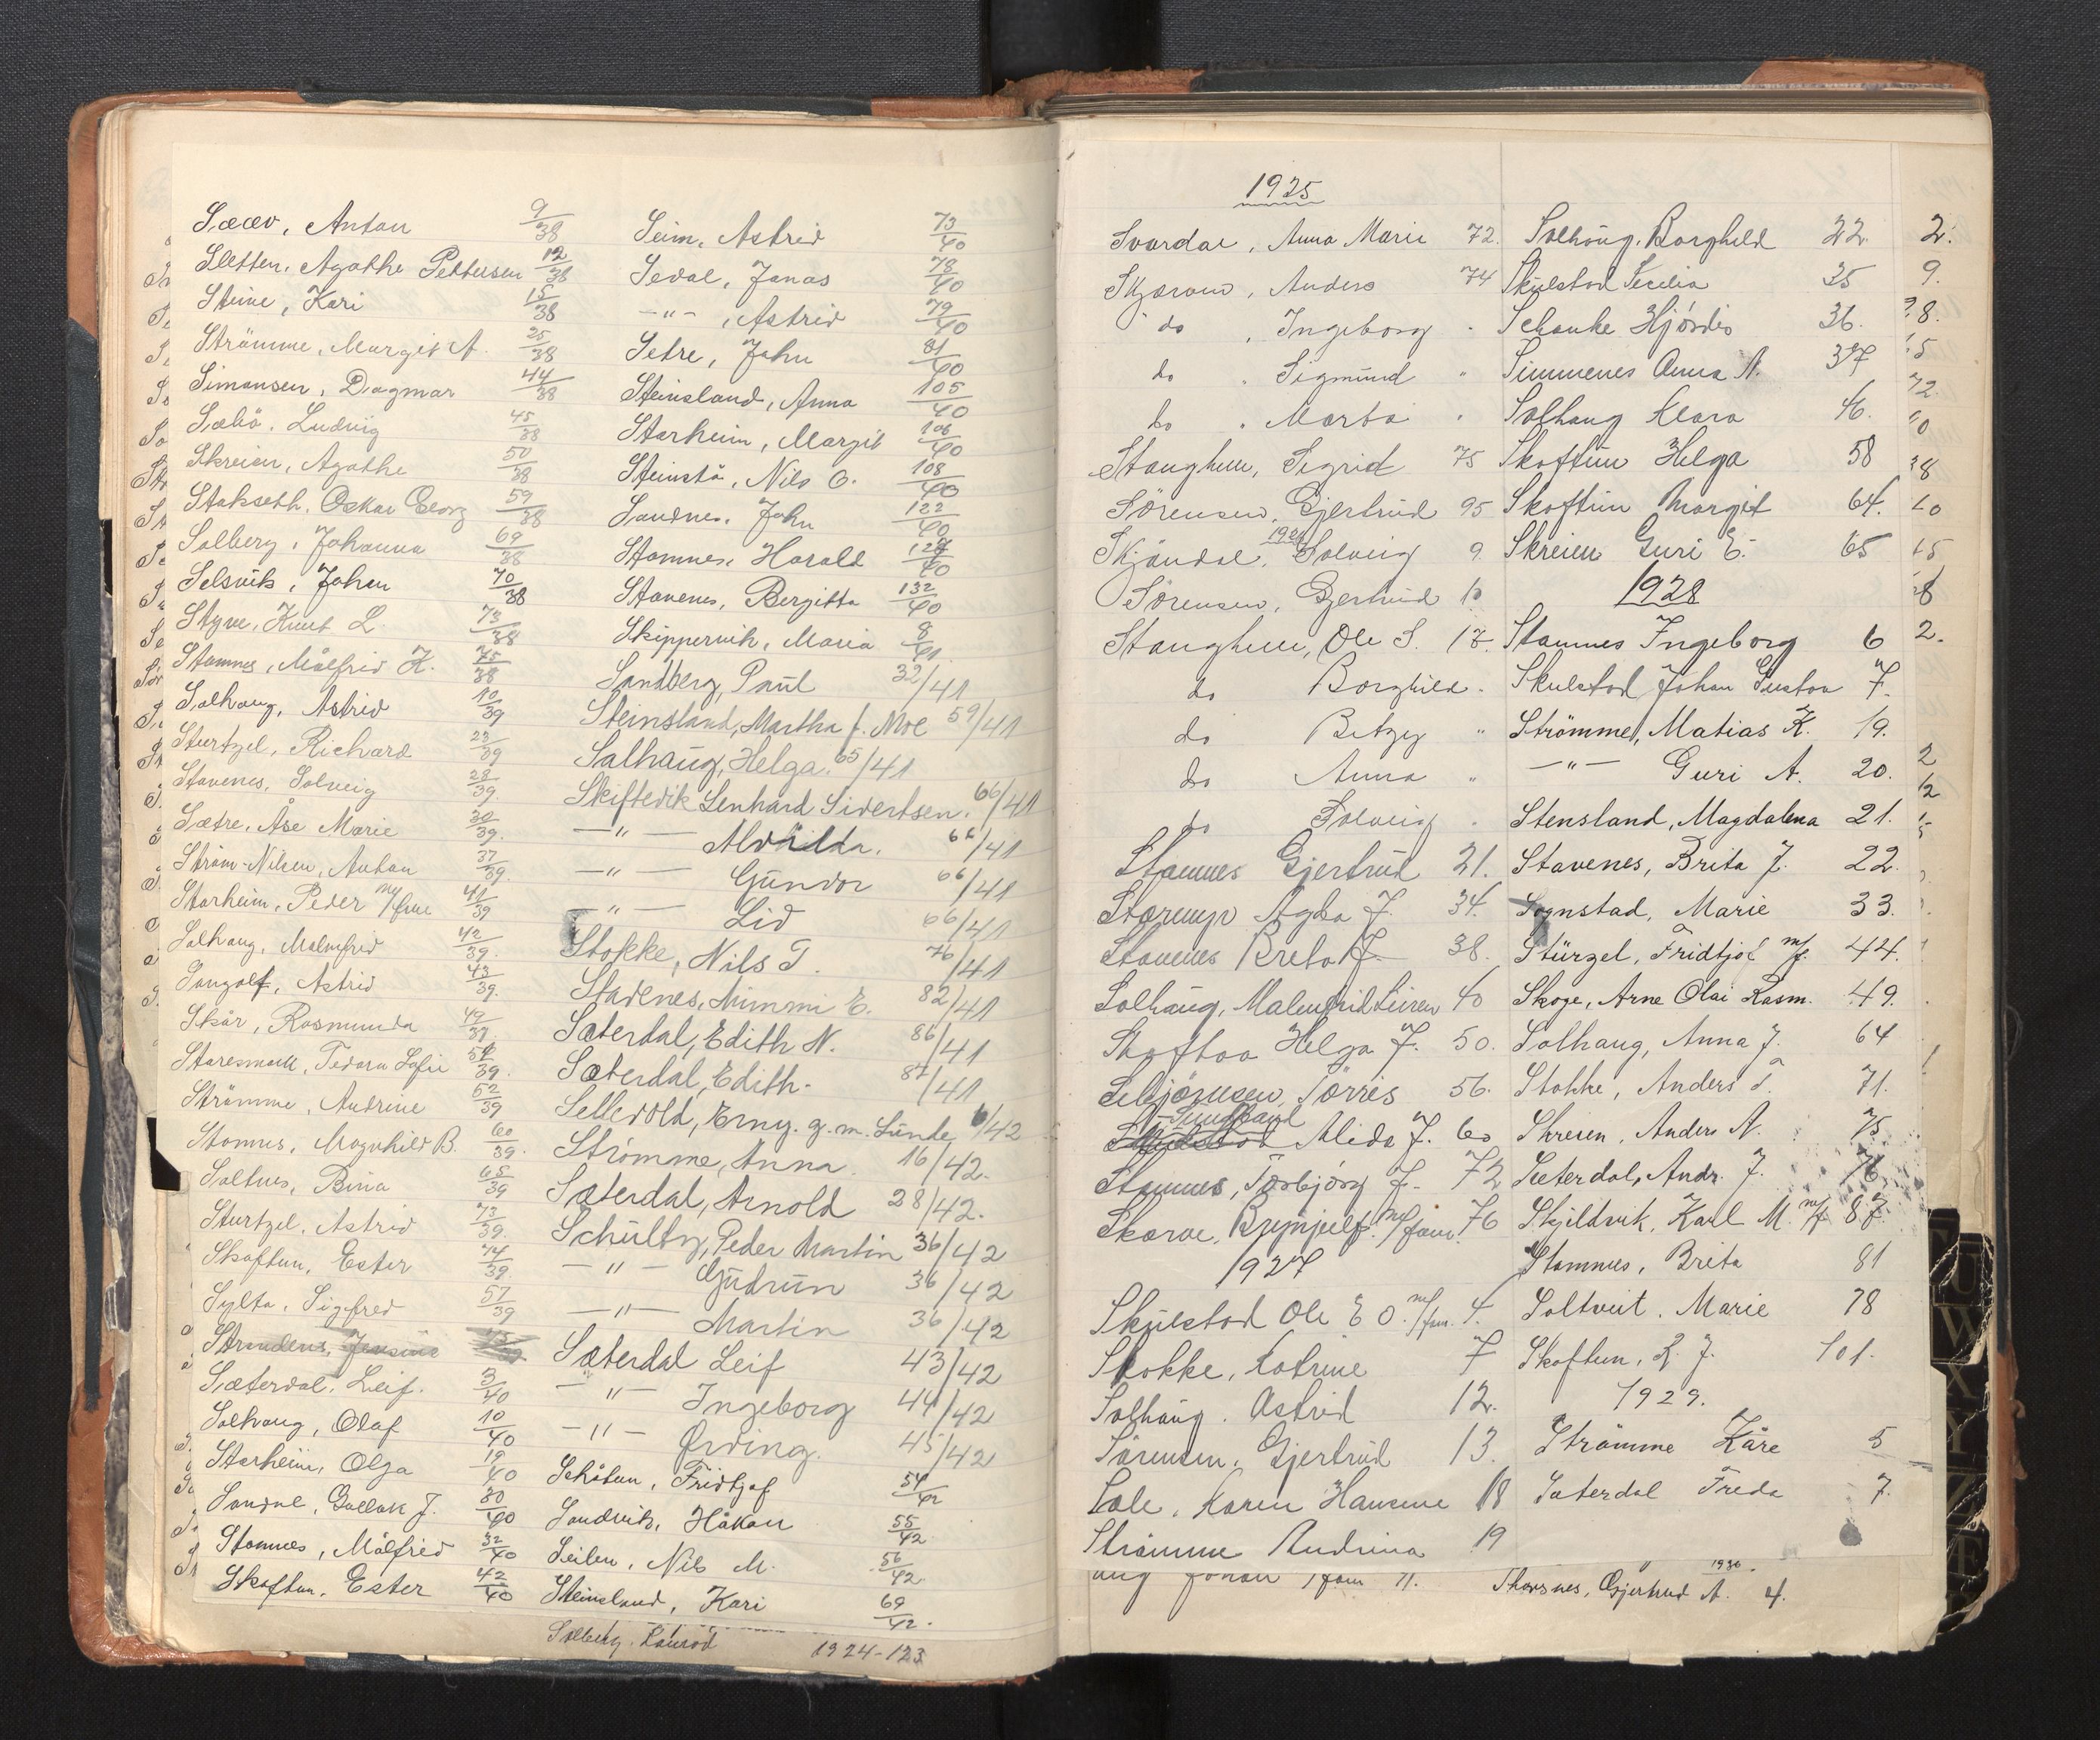 Sææv, Anton 9/38
Sletten, Agathe Pettersen 12/38
Steine, Kari 15/38
Strömme, Margit A. 25/38
Simonsen, Dagmar 44/38
Sæbö, Ludvig 45/38
Skreien, Agathe 50/38
Stakseth, Oskar Georg 59/38
Solberg, Johanna 69/38
Selsvik, Johan 70/38
Styve, Knut L. 73/38
Stamnes, Målfrid K. 75/38
Solhaug, Astrid 10/39
Sturtzel, Richard 23/39
Stavenes, Solveig 28/39.
Sætre, Åse Marie 30/39.
Ström-Nilsen, Anton 37/39.
Storheim, Peder m/frue 41/39
Solhaug, Malmfrid 42/39.
Songolf, Astrid 43/39.
Skår, Rasmunda 49/39.
Staresmark, Tedora Sofie /39.
Strömme, Andrine 52/39
Stamnes, Magnhild B. 60/39.
Saltnes, Bina 65/39
Sturtzel, Astrid 73/39.
Skaftun, Ester 74/39.
Sylta, Sigfred 57/39
Strandens, Jensine
Sæterdal, Leif. 3/40
Solhaug, Olaf 10/40
Storheim, Olga 19/40
Sandal, Gullak J. 30/40
Stamnes, Målfrid 32/40
Skaftun, Ester 42/40
Seim, Astrid 73/40
Sedal, Jonas 78/40
-"- , Astrid 79/40
Setre, John 81/40
Steinsland, Anna 105/40
Storheim, Margit 106/40
Steinstö, Nils O. 108/40
Sandnes, John 122/40
Stamnes, Harald /40
Stavenes, Bergitta 132/40
Skippervik, Maria 8/41
Sandberg, Paul 32/41
Steinsland, Martha f. Moe 59/41
Salhaug, Helga. 65/41
Skiftevik Lenhard Sivertsen. 66/41
-"- Alvilda. 66/41
-"- Gunvor 66/41
-"- Lid 66/41
Stokke, Nils T. 76/41
Stavenes, Mimmi E. 82/41
Sæterdal, Edith N. 86/41
Sæterdal, Edith. 87/41
Sellevold, Erny. g.m. Lunde 6/42
Strømme, Anna. 16/42.
Sæterdal, Arnold 28/42.
Schultz, Peder Martin 36/42
-"- Gudrun 36/42
-"- Martin 36/42
Sæterdal Leif 43/42
-"- Ingeborg 44/42
-"- Ørving. 45/42
Schötun, Fridtjof 54/42
Sandvik, Håkon 55/42.
Seilen, Nils M. 56/42.
Steinsland, Kari 69/42.
Solberg, Konrad 1924-123
1925
Svardal, Anna Marie 72.
Skjærven, Anders 74
do , Ingeborg "
do , Sigmund "
do , Marta "
Stanghelle, Sigrid 75
Sörensen, Gjertrud 95
1926
Skjøndal, Solveig 9.
Sörensen, Gjertrud 10
Stanghelle, Ole S. 17.
do Borghild "
do Betzy "
do Anna "
do Solveig "
Stamnes Gjertrud 21.
Agda J. 34.
Stavenes Breta J. 38.
Solhaug, Malmfrid 40
Skaftaa Helga J. 50.
Torris 56.
Alida J. 60
Stamnes, Torbjörg J. 72
Skarve, Brynjulf m/fam. 76
1927
Skulstad Ole E O. m/fam. 4.
Stokke, Katrine 7
Solhaug, Astrid 12.
Sörensen, Gjertrud 13.
Sæle, Karen Hansine 18
Strömme Andrina 19
Johan m/fam 11.
Solhaug, Borghild 22.
Skulstad Secilia 35
Schanke Hjördis 36.
Simmenes Anna A. 37
Solhaug Klara 46.
Skaftun Helga 58
Skaftun Margit 64.
Skreien Guri E. 65
1928
Stamnes Ingeborg 6
Skulstad Johan Gustav 7.
Strömme, Matias K. 19.
-"- Guri A. 20.
Stensland, Magdalena 21.
Stavenes, Brita J. 22.
Sognstad, Marie 33.
Stürzel, Fridtjof m/f. 44.
Skoge, Arne Olai Rasm. 49.
Solhaug, Anna J. 64
Stokke, Anders T. 71.
Skreien, Anders N. 75.
Sæterdal, Andr. J. 76
Skjeldvik, Karl M. m/f 87.
Stamnes, Brita 81
Soltveit, Marie 78
Skaftun, K. J. 101.
1929.
Strömme Kåre 5
Sæterdal Freda 7.
1930.
Thorsnes, Gjertrud A. 4.